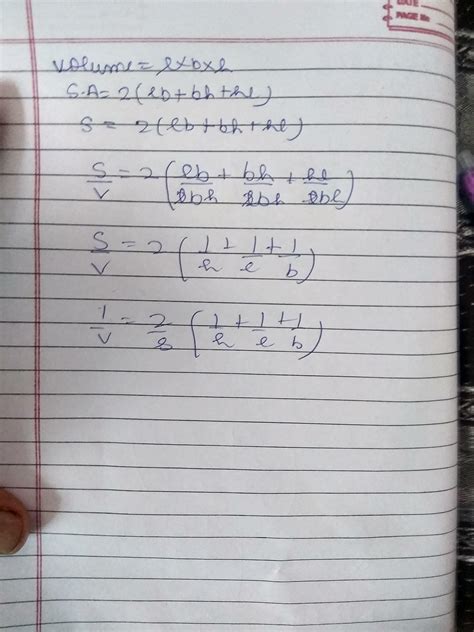 DATE
PAGE No
Volume = l×b×h
S.A = 2(lb+bh+hl)
S = 2(lb+bh+hl)
S/V = 2(lb/lbh + bh/lbh + hl/lbh)
S/V = 2(1/h + 1/l + 1/b)
1/V = 2/S (1/h + 1/l + 1/b)